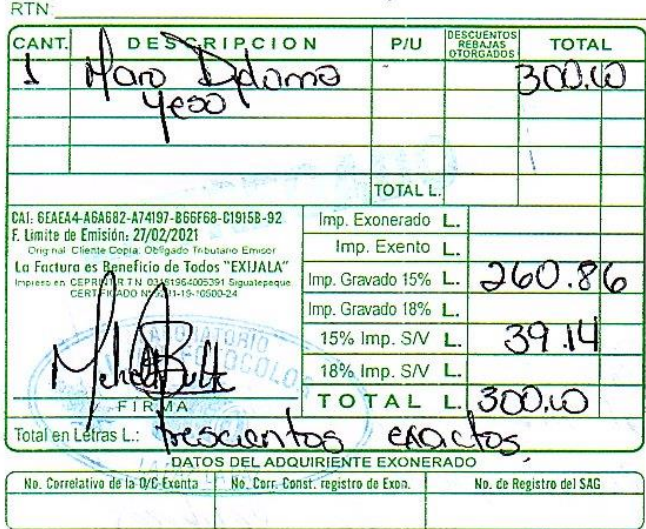 RTN:
CANT. DESCRIPCION P/U DESCUENTOS REBAJAS OTORGADOS TOTAL
1 300.00
yeso
TOTAL L.
CAI: 6EAEA4-A6A682-A74197-B66F68-C1915B-92
F. Limite de Emisión: 27/02/2021
Original: Cliente Copia: Obligado Tributario Emisor
La Factura es Beneficio de Todos "EXIJALA"
Impreso en CEPRINT R.T.N. 03181964005391 Siguatepeque
Imp. Exonerado L.
Imp. Exento L.
Imp. Gravado 15% L. 260.86
Imp. Gravado 18% L.
15% Imp. S/V L. 39.14
18% Imp. S/V L.
FIRMA
TOTAL L. 300.00
Total en Letras L.: trescientos exactos.
DATOS DEL ADQUIRIENTE EXONERADO
No. Correlativo de la O/C Exenta No. Corr. Const. registro de Exon. No. de Registro del SAG